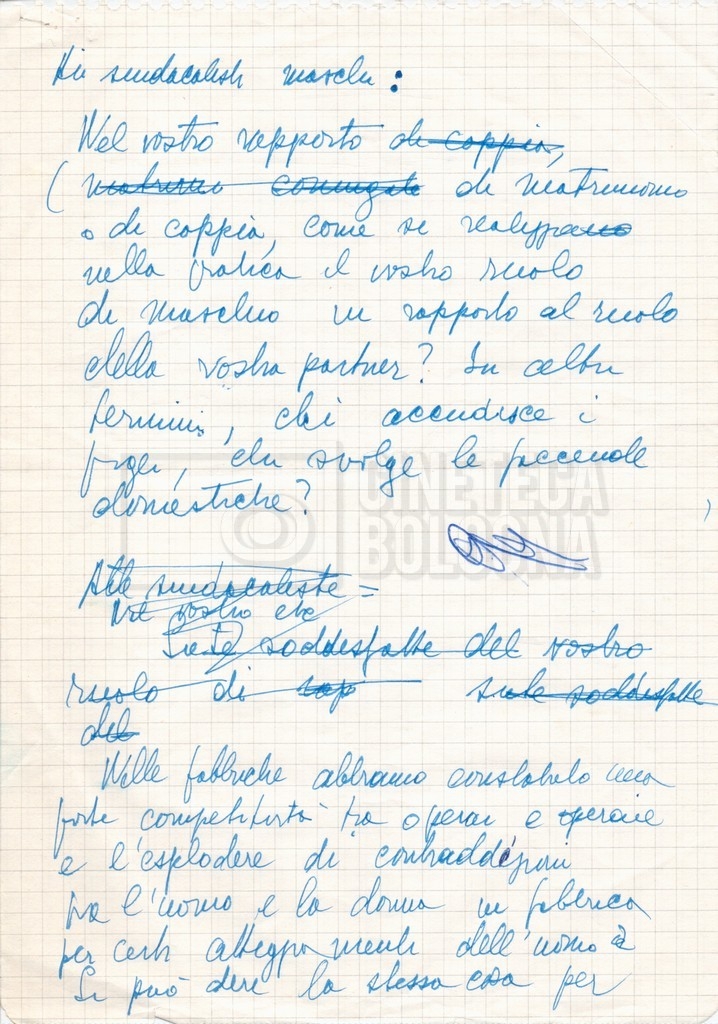 Ai sindacalisti maschi :
Nel vostro rapporto di coppia,
( matrimo coniugale di matrimonio
o di coppia, come si realizzano
nella pratica il vostro ruolo
di maschio in rapporto al ruolo
della vostra partner? In altri
termini, chi accudisce i
figli, chi svolge le faccende
domestiche?
CINETECA
BOLOGNA
Alle sindacaliste =
Nel vostro che
Siete soddisfatte del vostro
ruolo di rap siete soddisfatte
del
Nelle fabbriche abbiamo constatato una
forte competitività tra operai e operaie
e l'esplodere di contraddizioni
tra l'uomo e la donna in fabbrica
per certi atteggiamenti dell'uomo
Si può dire la stessa cosa per